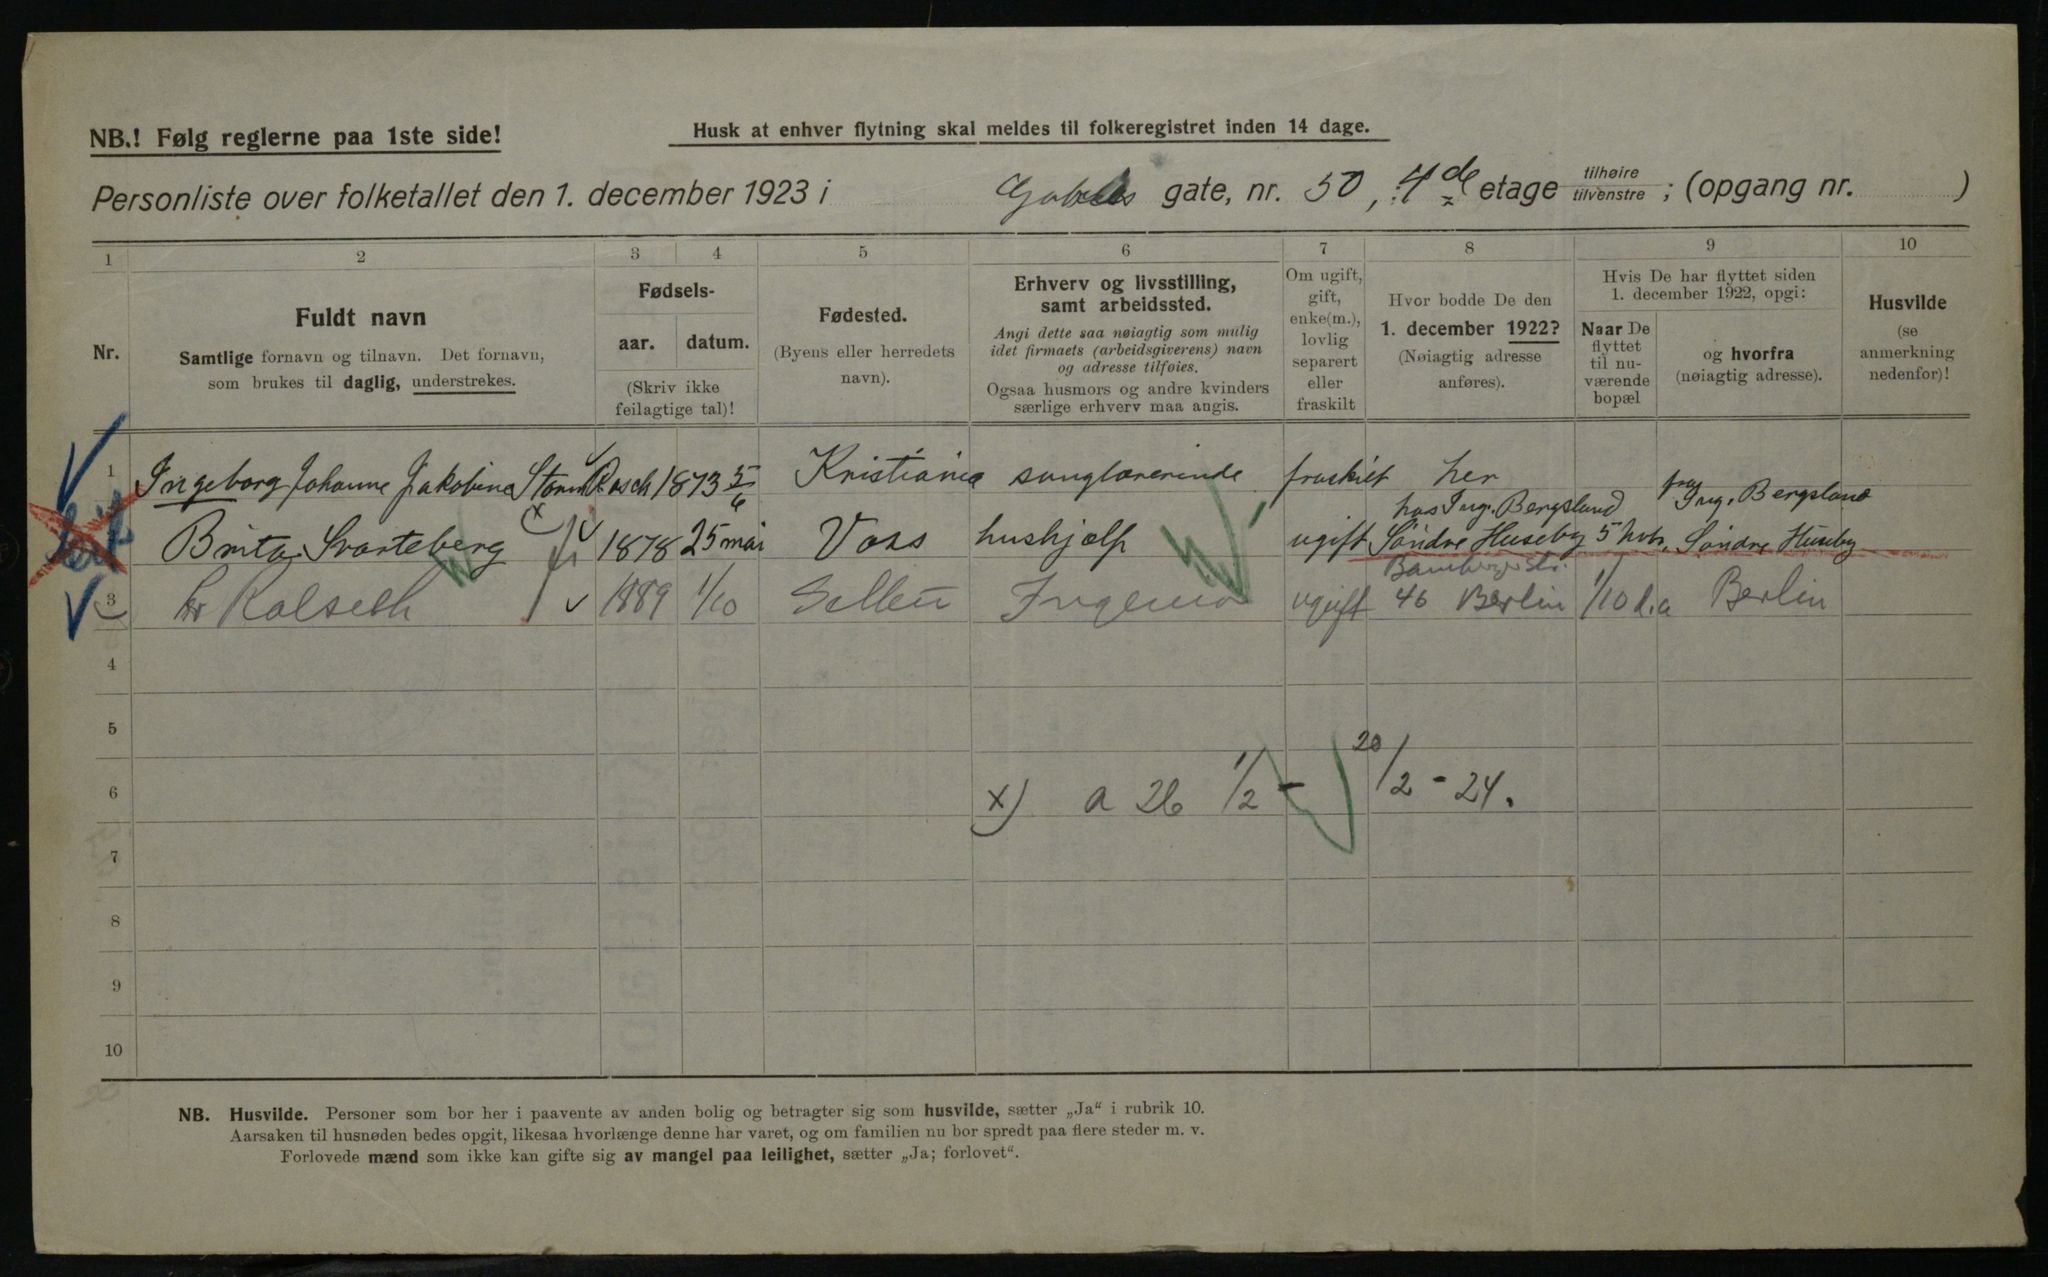 NB.! Følg reglerne paa 1ste side!
Husk at enhver flytning skal meldes til folkeregistret inden 14 dage.
Personliste over folketallet den 1. december 1923 i Gabels gate, nr. 50, 4de etage tilhøire tilvenstre ; (opgang nr. )
1 2 3 4 5 6 7 8 9 10
Nr.
Fuldt navn
Samtlige fornavn og tilnavn. Det fornavn,
som brukes til daglig, understrekes.
Fødsels-
aar. datum.
(Skriv ikke
feilagtige tal)!
Fødested.
(Byens eller herredets
navn).
Erhverv og livsstilling,
samt arbeidssted.
Angi dette saa nøiagtig som mulig
idet firmaets (arbeidsgiverens) navn
og adresse tilføies.
Ogsaa husmors og andre kvinders
særlige erhverv maa angis.
Om ugift,
gift,
enke(m.),
lovlig
separert
eller
fraskilt
Hvor bodde De den
1. december 1922?
(Nøiagtig adresse
anføres).
Hvis De har flyttet siden
1. december 1922, opgi:
Naar De
flyttet
til nu-
værende
bopæl
og hvorfra
(nøiagtig adresse).
Husvilde
(se
anmerkning
nedenfor)!
1 Ingeborg Johanne Jakobine Storm Rasch 1873 5/6 Kristiania sanglærerinde fraskilt her
hos Ing. Bergsland fra Ing. Bergsland
Brita Svarteberg x) 1878 25 mai Voss hushjælp ugift Søndre Huseby 5 hvbr. Søndre Huseby
Bambergerstr.
3 hr Kolseth 1889 1/10 Ingeniør ugift 46 Berlin 1/10 d.a Berlin
4
5
6 x) a 26 1/2 - 20/2 - 24.
7
8
9
10
NB. Husvilde. Personer som bor her i paavente av anden bolig og betragter sig som husvilde, sætter „Ja“ i rubrik 10.
Aarsaken til husnøden bedes opgit, likesaa hvorlænge denne har varet, og om familien nu bor spredt paa flere steder m. v.
Forlovede mænd som ikke kan gifte sig av mangel paa leilighet, sætter „Ja; forlovet“.